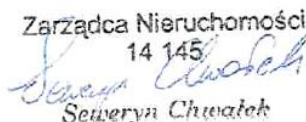 Zarządca Nieruchomości
14 145
Seweryn Chwałek
Seweryn Chwałek